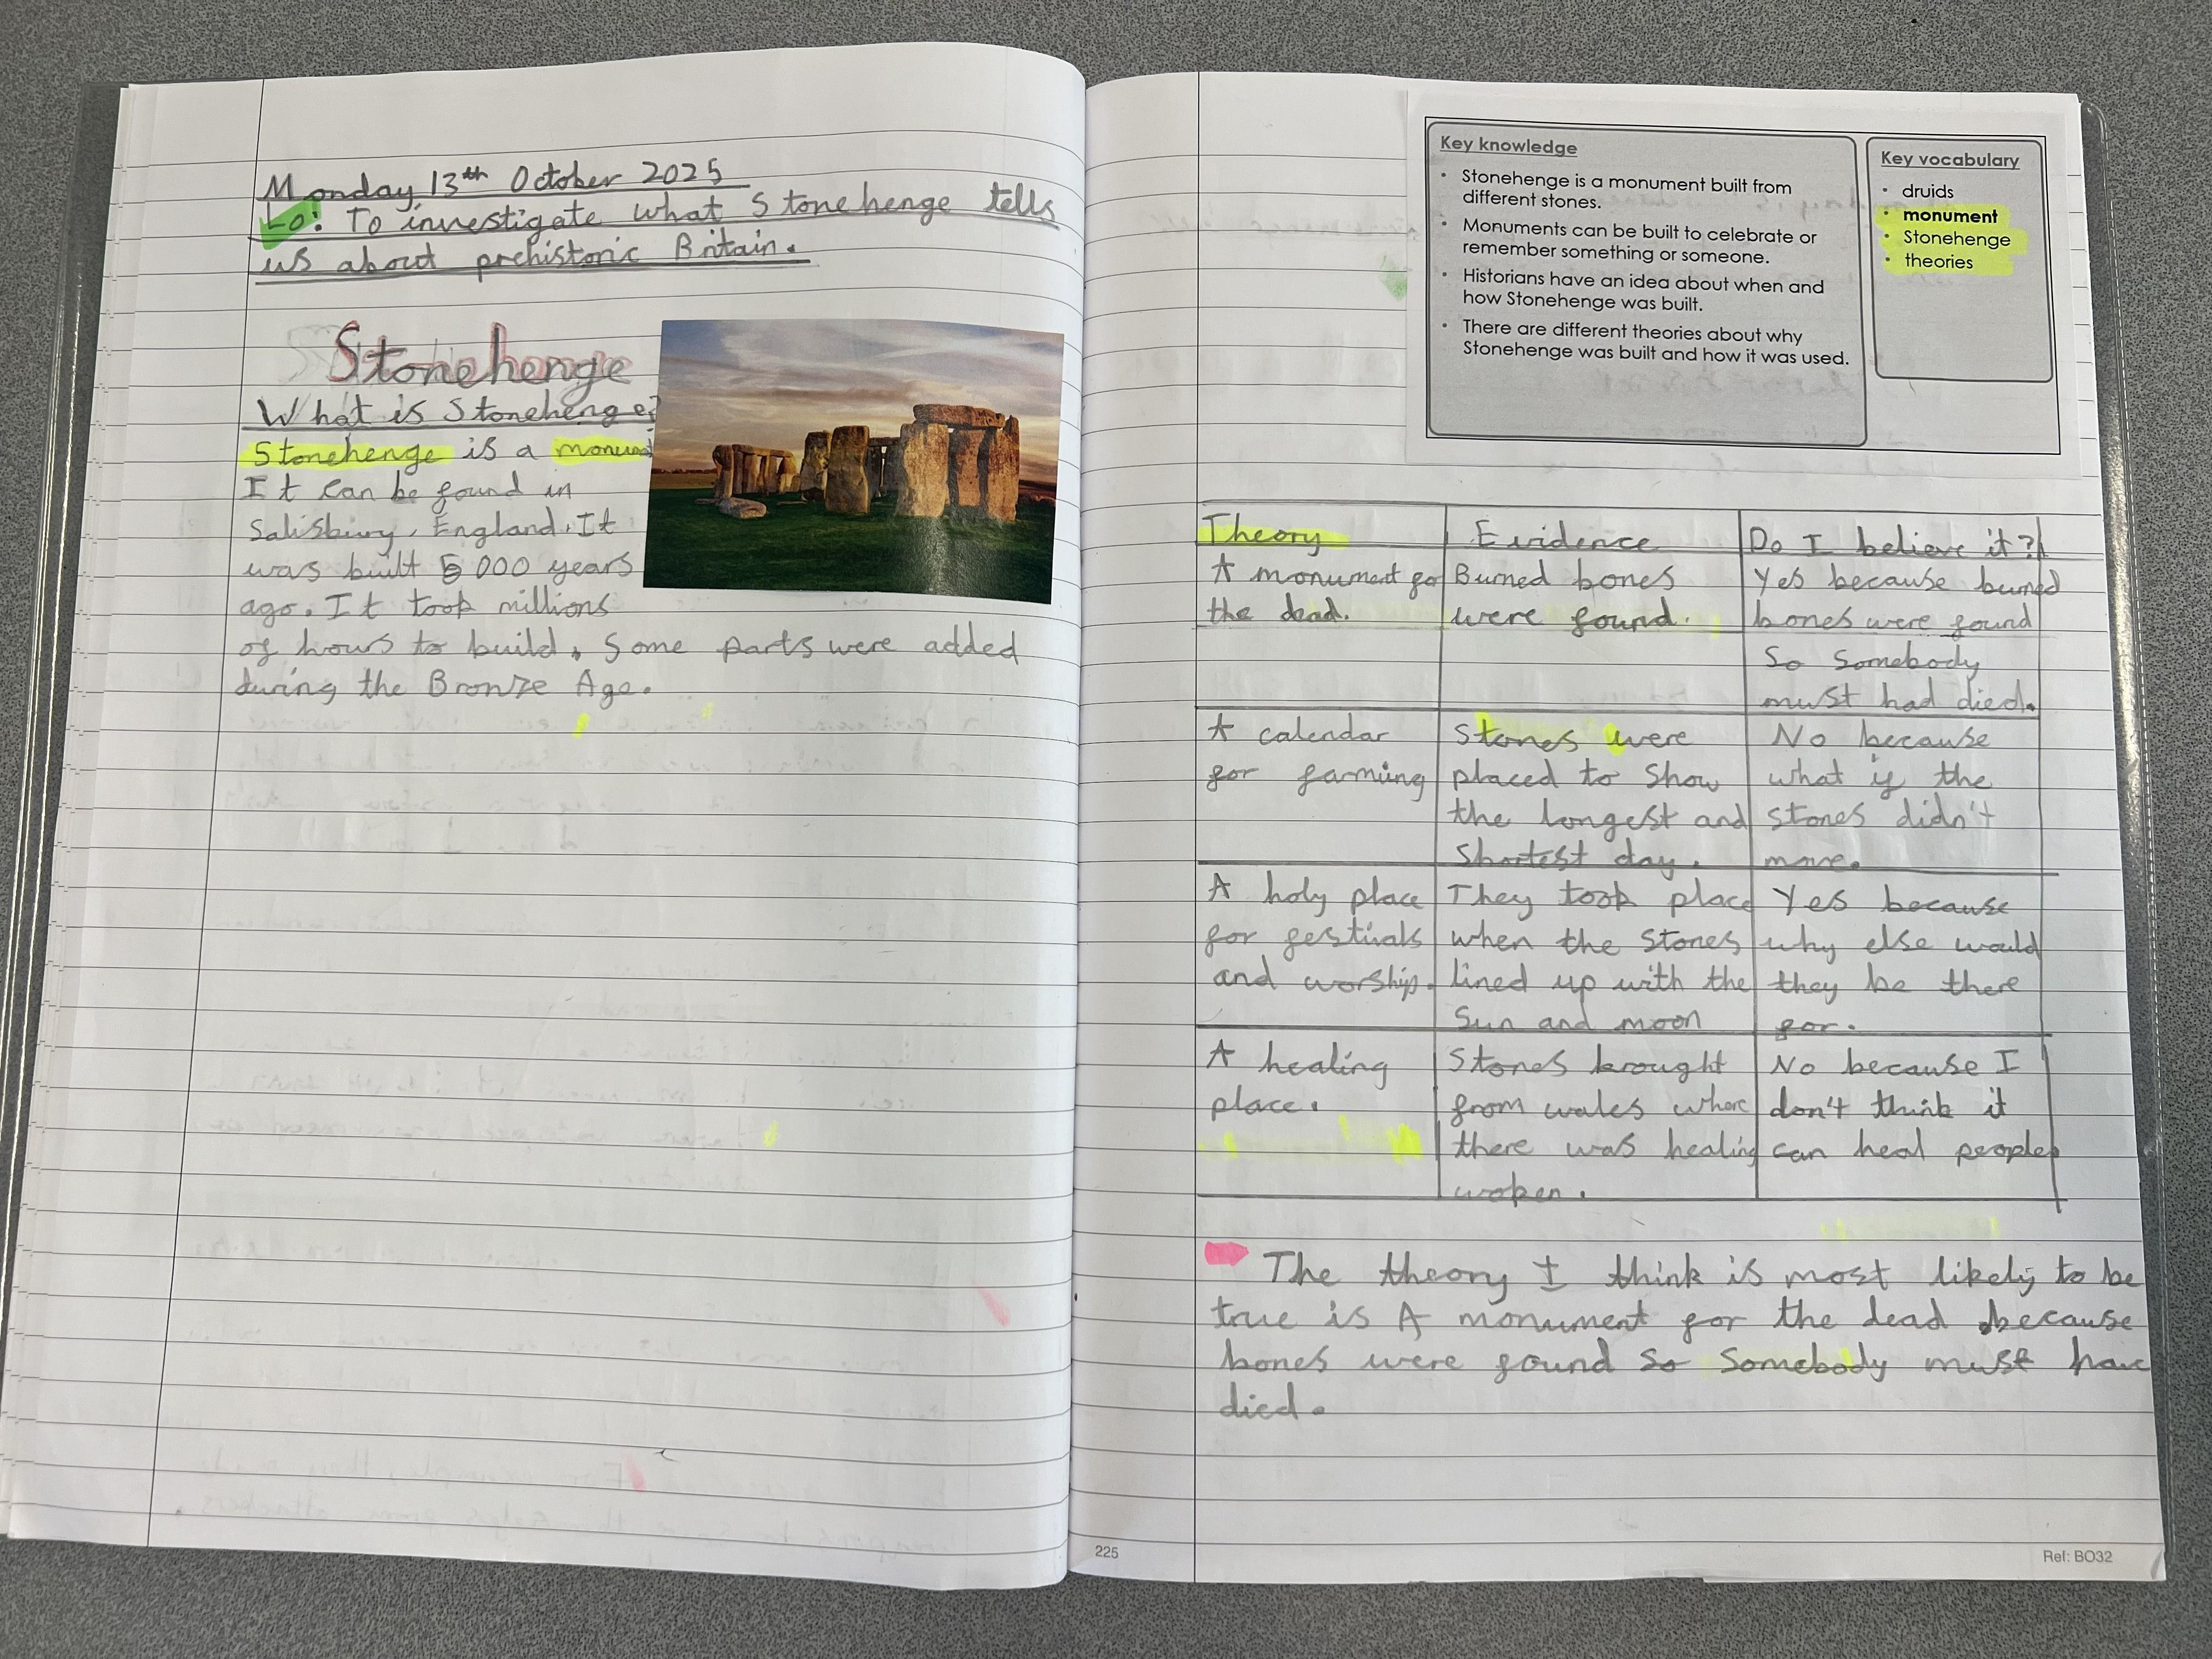 Monday 13th October 2025
Lo: To investigate what Stonehenge tells
us about prehistoric Britain.
Stonehenge
What is Stonehenge?
Stonehenge is a
It can be found in
Salisbury, England. It
was built 5000 years
ago. It took millions
of hours to build. Some parts were added
during the Bronze Age.
Key knowledge
• Stonehenge is a monument built from
different stones.
• Monuments can be built to celebrate or
remember something or someone.
• Historians have an idea about when and
how Stonehenge was built.
• There are different theories about why
Stonehenge was built and how it was used.
Key vocabulary
• druids
• monument
• Stonehenge
• theories
Theory
Evidence
Do I believe it?
A monument fo
the dead.
Burned bones
were found.
Yes because burned
bones were found
So Somebody
must had died.
A calendar
for farming
Stones were
placed to show
the longest and
shortest day.
No because
what if the
stones didn't
move.
A holy place
for festivals
and worship.
They took place
when the stones
lined up with the
Sun and moon
Yes because
why else would
they be there
for.
A healing
place.
Stones brought
from wales where
there was healing
No because I
don't think it
can heal people
The theory I think is most likely to be
true is A monument for the dead because
bones were found so somebody must have
died.
225
Ref: BO32